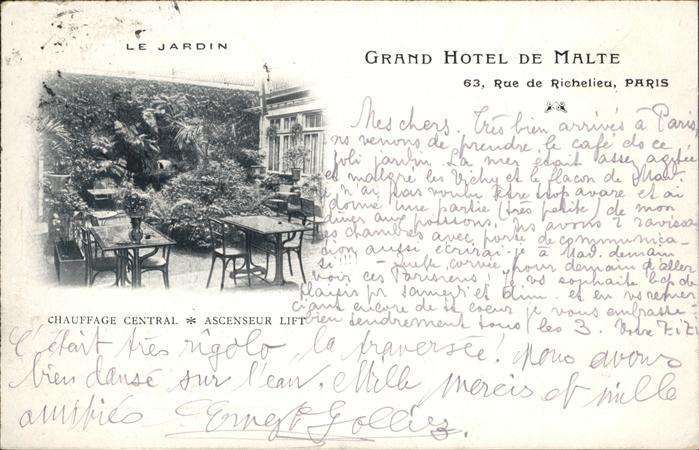 LE JARDIN
GRAND HOTEL DE MALTE
63, Rue de Richelieu, PARIS
CHAUFFAGE CENTRAL * ASCENSEUR LIFT
Mes chers. Très bien arrivés à Paris
ns venons de prendre le café ds ce
joli jardin. La mer était assez agitée
et malgré les Vichy et le flacon de
je n'ai pas voulu être trop avare et ai
donné une partie (très petite) de mon
dîner aux poissons. Ns avons 2 raviss
chambres avec porte de communica-
tion aussi écrirai-je à Mad. demain
si !!! - Quelle corvée pour demain d'aller
voir ces Parisiens! Je vs souhaite bcp de
plaisir pr samedi et dim. et en vs remer-
ciant encore de tt coeur je vous embrasse
bien tendrement tous les 3. Votre ZiZi
C'était très rigolo, la traversée! Nous avons
bien dansé sur l'eau. Mille mercis et mille
amitiés Ernest Golliez